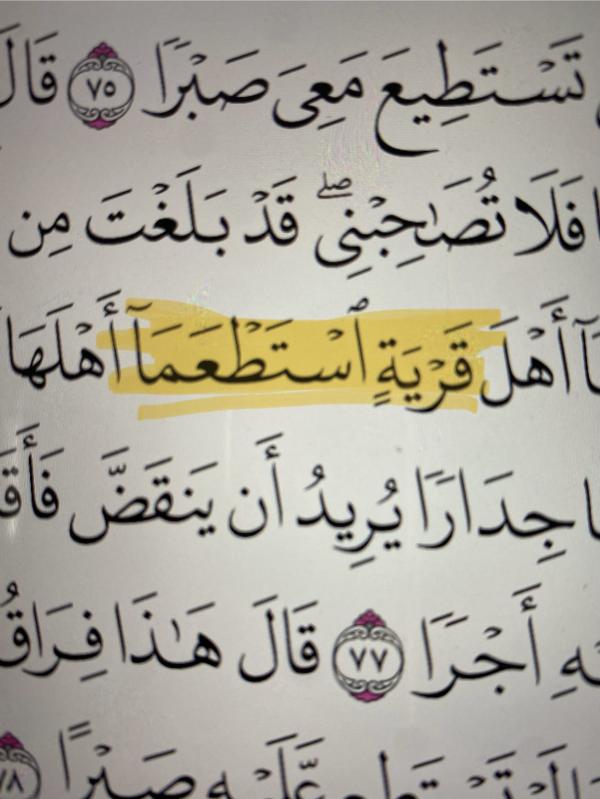 تَسْتَطِيعَ مَعِىَ صَبْرًا ٧٥ قَالَ
فَلَا تُصَـٰحِبْنِى ۖ قَدْ بَلَغْتَ مِن
أَهْلَ قَرْيَةٍ ٱسْتَطْعَمَآ أَهْلَهَا
جِدَارًا يُرِيدُ أَن يَنقَضَّ
أَجْرًا ٧٧ قَالَ هَـٰذَا فِرَاقُ
عَّلَيْهِ صَبْرًا ٧٨